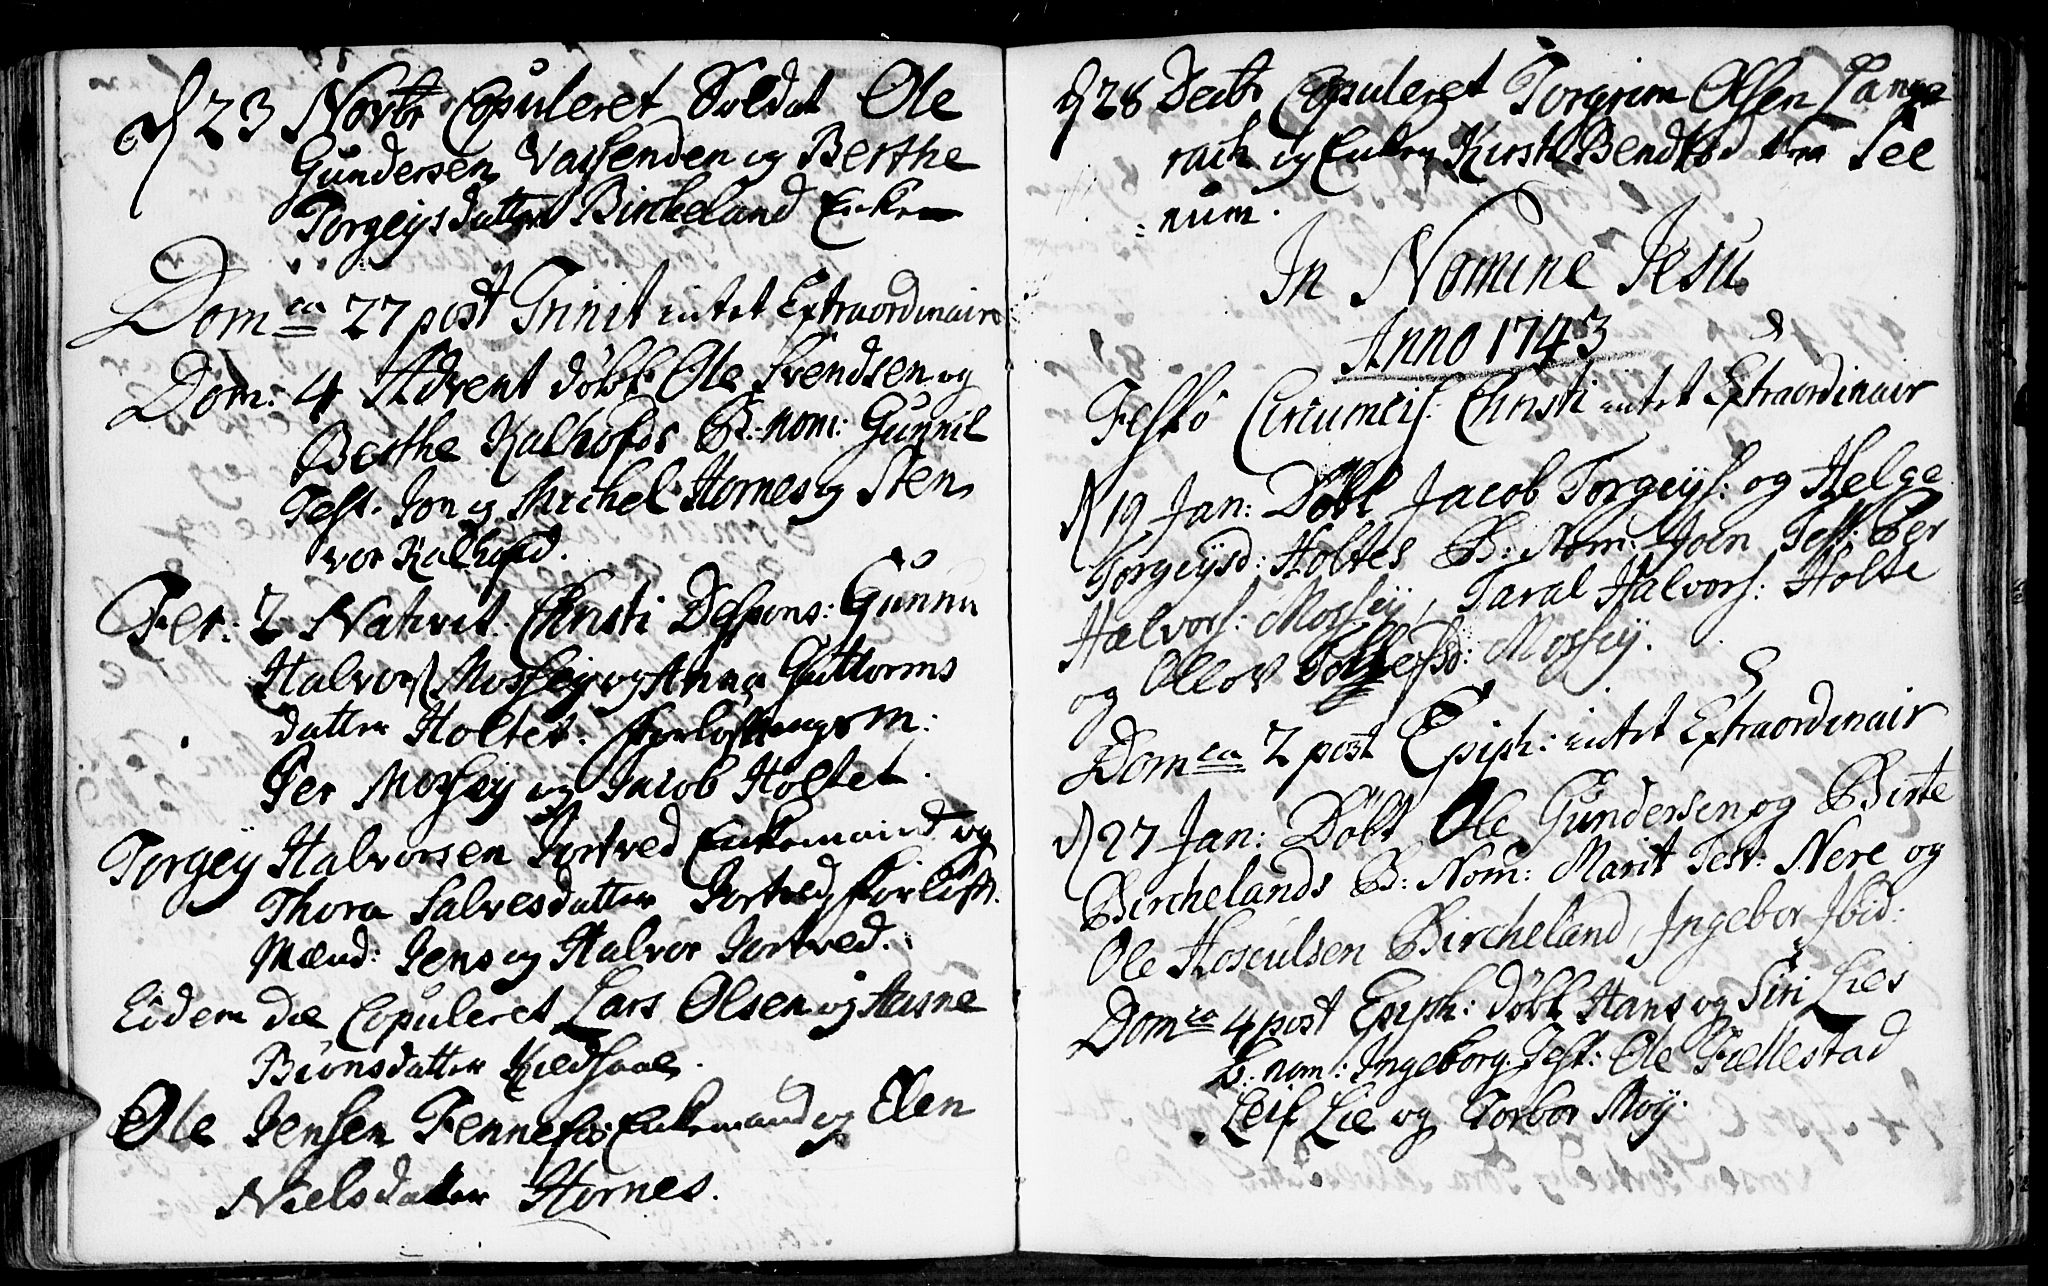 d 23 Novbr Copuleret Soldat Ole
Gundersen Vassenden og Berthe
Torgeÿsdatter Bircheland Enke
Domca 27 post Trinit intet Extraordinair
Dom: 4 Advent döbt Ole Svendsen og
Berthe Kalhofds B: nom: Gunnil
Test. Jon og Michel Hornes og Sten
vor Kalhofd.
Fer: 2 Nativit: Christi Despons: Gunnu
Halvors Mossey og Anna Guttorms
datter Holtet. Forloftnings M:
Per Mossey og Jacob Holtet.
Torgeÿ Halvorsen Jortved Enkemand og
Thora Salvesdatter Jortved, Forloft.
Mænd: Jens og Halvor Jortved.
Eodem die Copuleret Lars Olsen og Aasne
Biönsdatter Kiedsaae.
Ole Jensen Fennefos Enkemand og Elen
Nielsdatter Hornes.
d 28 Decbr Copuleret Torgrim Olsen Lange
rach og Enken Kirsti Bendtsdatter See
num.
In Nomine Jesu
Anno 1743
Festo Circumcis: Christi intet Extraordinair
d 19 Jan: Döbt Jacob Torgeÿs: og Helge
Torgeÿsd: Holtes B: Nom: Joen Test: Per
Halvors: Mossey, Taral Halvors: Holte
og Ollov Mosseÿ.
Domca 2 post Epiph: intet Extraordinair
d 27 Jan: Döbt Ole Gundersen og Birte
Birchelands B: Nom: Marit Test: Nere og
Ole Hosculsen Bircheland, Ingebor Ibid:
Domca 4 post Epiph: döbt Hans og Siri Lies
B: nom: Ingeborg. Test: Ole Fiellestad
Leif Lie og Torbor Moÿ.